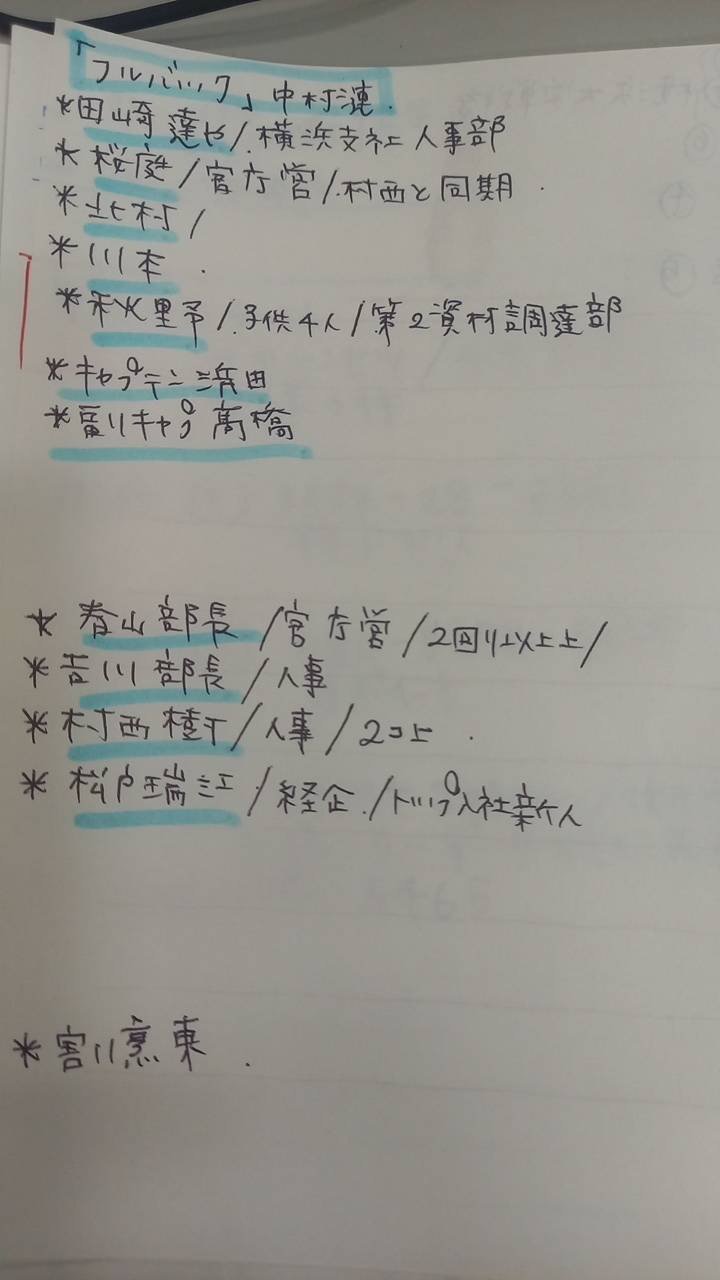 「フルバック」中村漣.
*田崎達也/.横浜支社人事部
*桜庭/官庁営/村西と同期.
*北村/
*川本.
*秋里予/.子供4人/第2資材調達部
*キャプテン浜田
*副キャプ高橋
*春山部長/官庁営/2回り以上上/
*吉川部長/人事
*村西種千/人事/2コ上.
*松戸瑞江/経企./トップ入社新人
*割烹東.